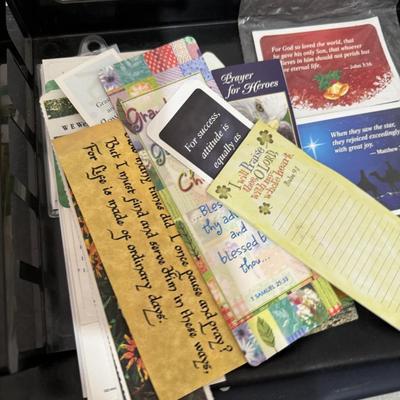 For God so loved the world, that
gave his only Son, that whoever
ieves in him should not perish but
e eternal life.
— John 3:16
When they saw the star,
they rejoiced exceedingly
with great joy.
— Matthew
Prayer
for Heroes
For success,
attitude is
equally as
I will Praise
thee, O LORD,
with my
whole heart.
Psalm 9:1
...Bles
thy ad
and
blessed b
thou...
1 SAMUEL 25:33
WE W
Gra
many times did I once pause and pray?
But I must find and serve Him in these ways,
For Life is made of ordinary days.